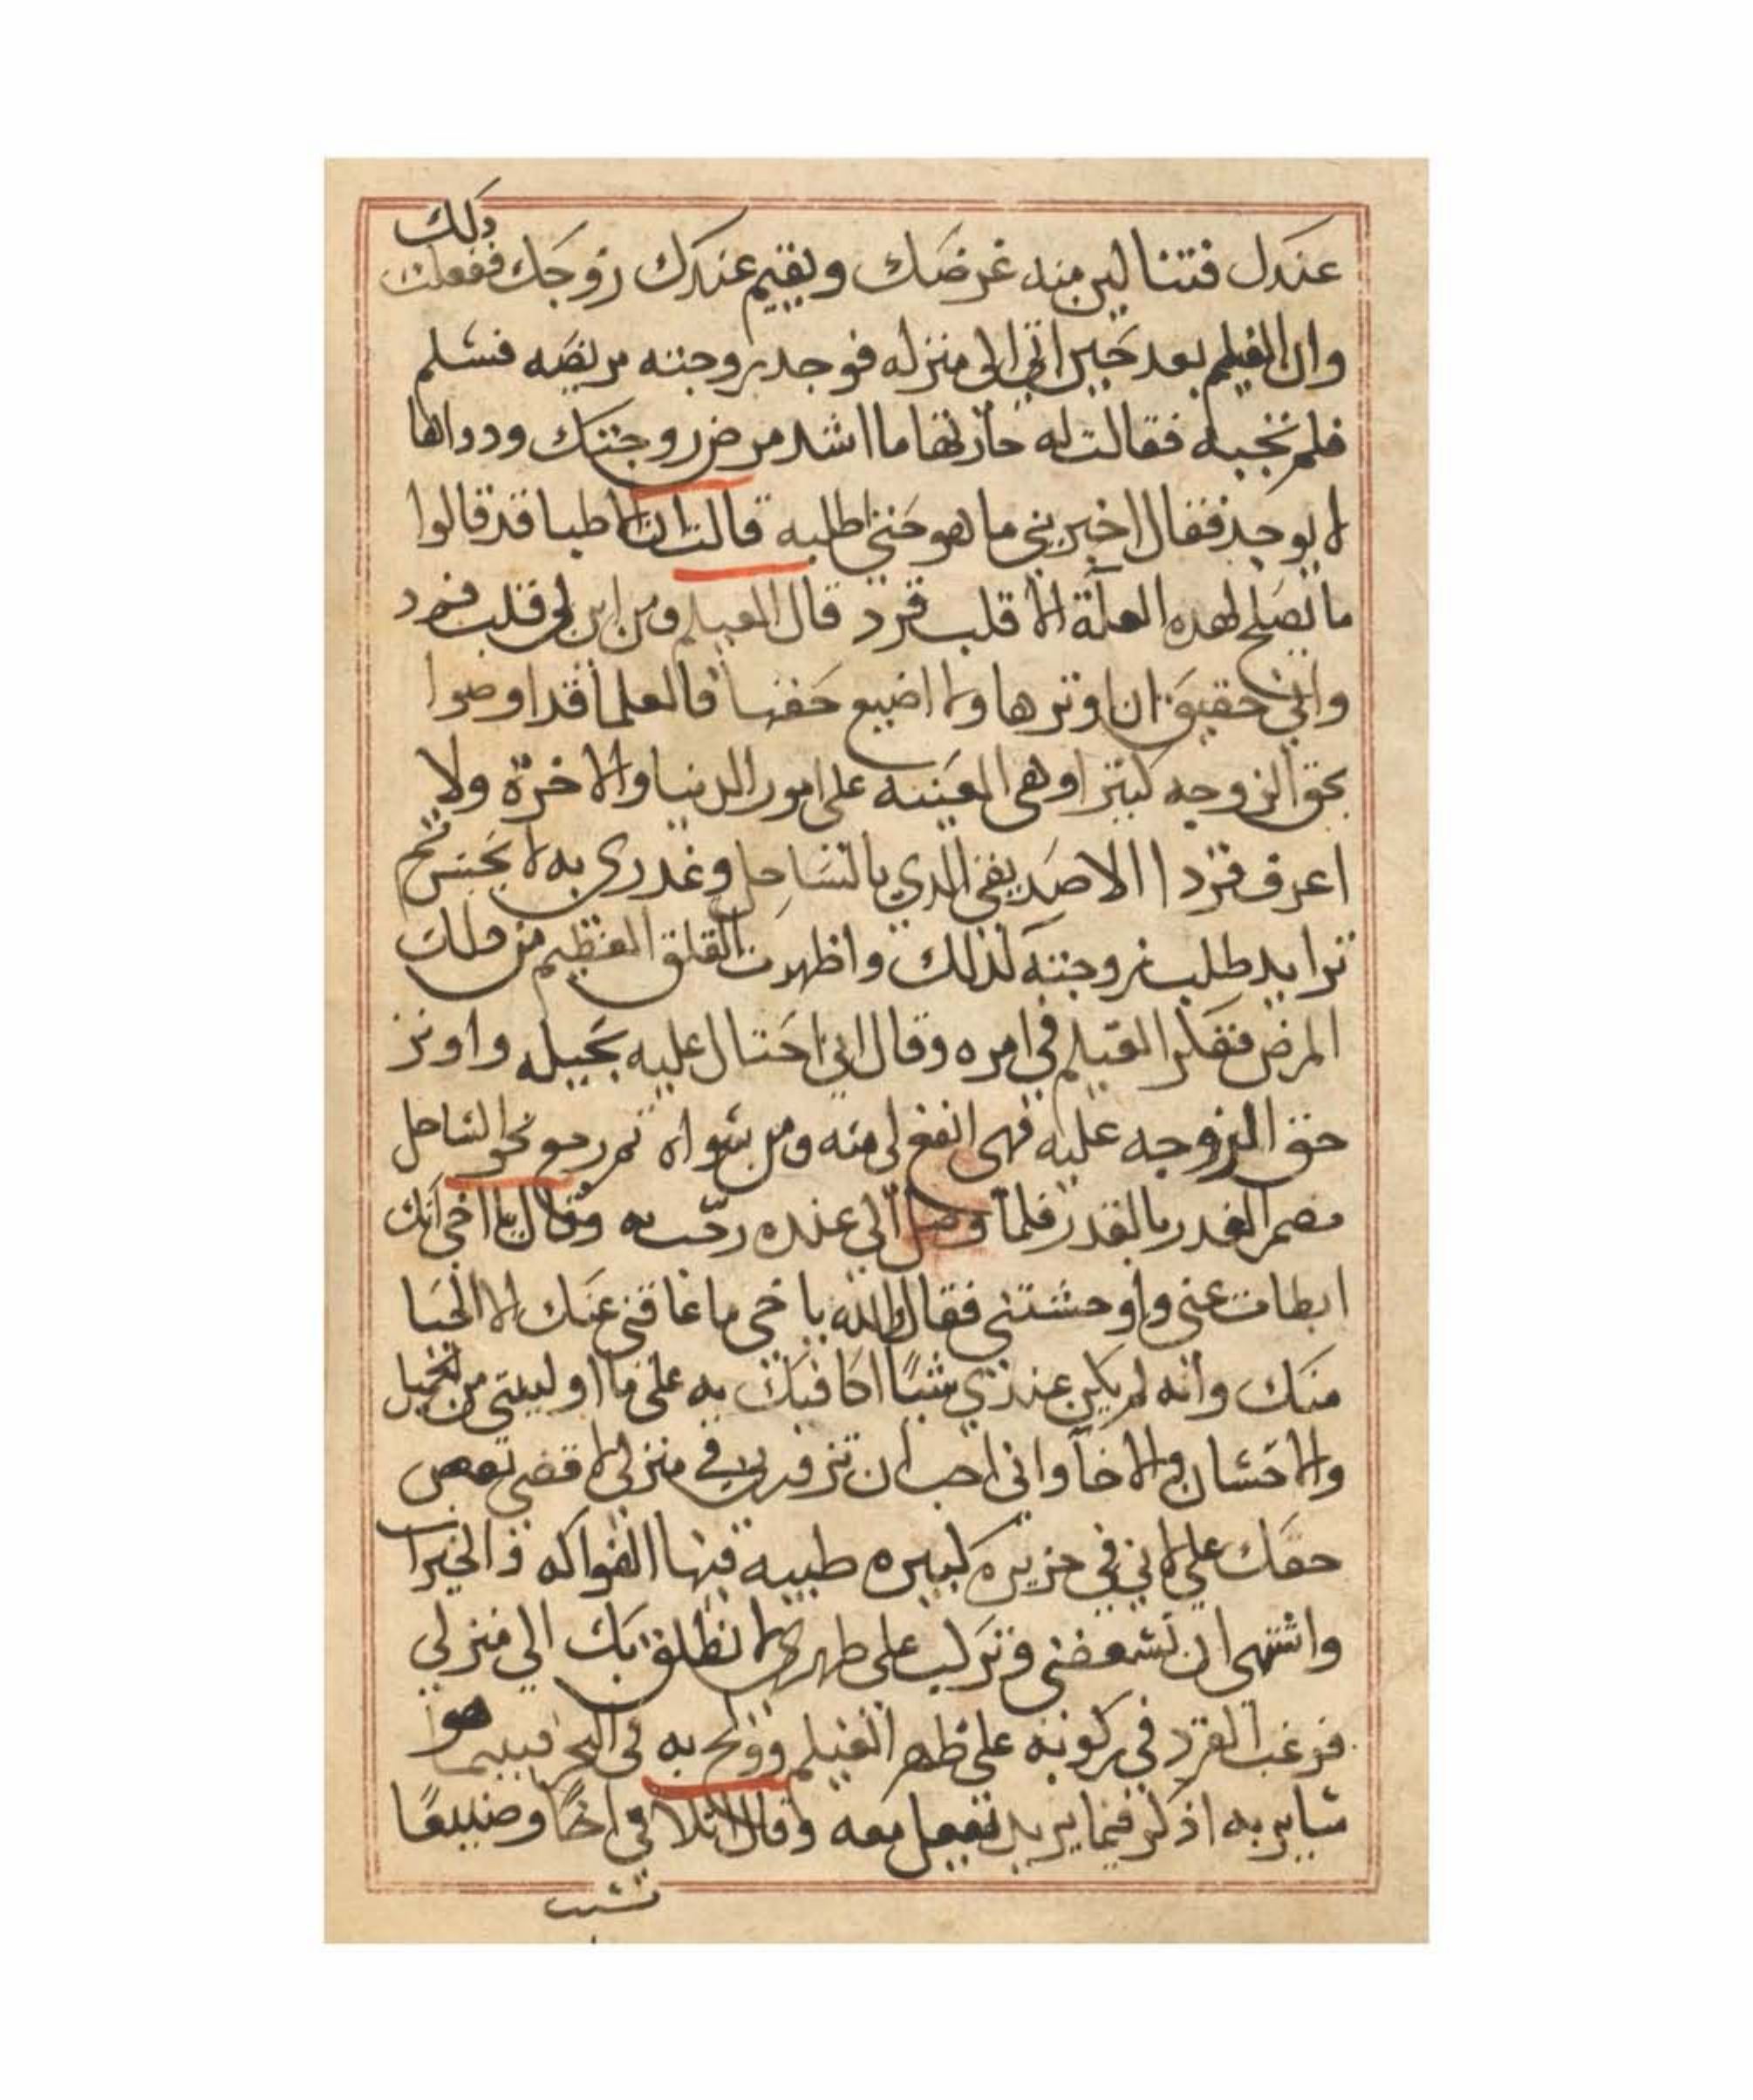 عندك فتنالين منه غرضك ويقيم عندك زوجك ففعلت ذلك
وان الغيلم بعد حين اتي الى منزله فوجد زوجته مريضه فسلم
فلم تجبه فقالت له جارتها ما اشد مرض زوجتك ودواها
لا يوجد فقال اخبريني ما هو حتى اطلبه قالت ان الاطبا قد قالوا
ما يصلح لهذه العلة الا قلب قرد قال الغيلم ومن اين لي قلب قرد
واني حقيق ان اوثرها ولا اضيع حقها فالعلما قد اوصوا
بحق الزوجه كثيرا وهي المعينه على امور الدنيا والاخرة ولا
اعرف قردا الا صديقي الذي بالساحل وغدري به لا يحسن ثم
تزايد طلب زوجته لذلك واظهرت القلق العظيم من ذلك
المرض فتفكر الغيلم في امره وقال اني احتال عليه بحيله واوثر
حق الزوجه عليه فهي انفع لي منه ومن سواه ثم رجع نحو الساحل
مضمر الغدر بالقرد فلما وصل الي عنده رحب به وقال يا اخي انك
ابطات عني واوحشتني فقال والله ياخي ما عاقني عنك الا الحيا
منك وانه لم يكن عندي شيا اكافيك به على ما اوليتني من الجميل
والاحسان والاخا واني احب ان تزورني في منزلي لاقضي بعض
حقك علي لاني في جزيره كبيره طيبه فيها الفواكه والخيرات
واشتهي ان تسعفني وتركب على ظهري لانطلق بك الي منزلي
فرغب القرد في ركوبه على ظهر الغيلم وولج به في البحر فبينما هوا
ساير به اذ فكر فيما يريد يفعل معه وقال الا تلاقي اخا وضيعا